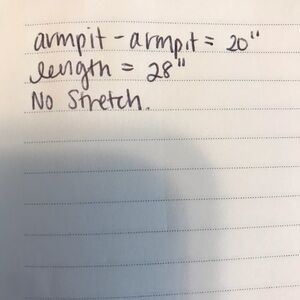 armpit - armpit = 20"
length = 28"
No Stretch.